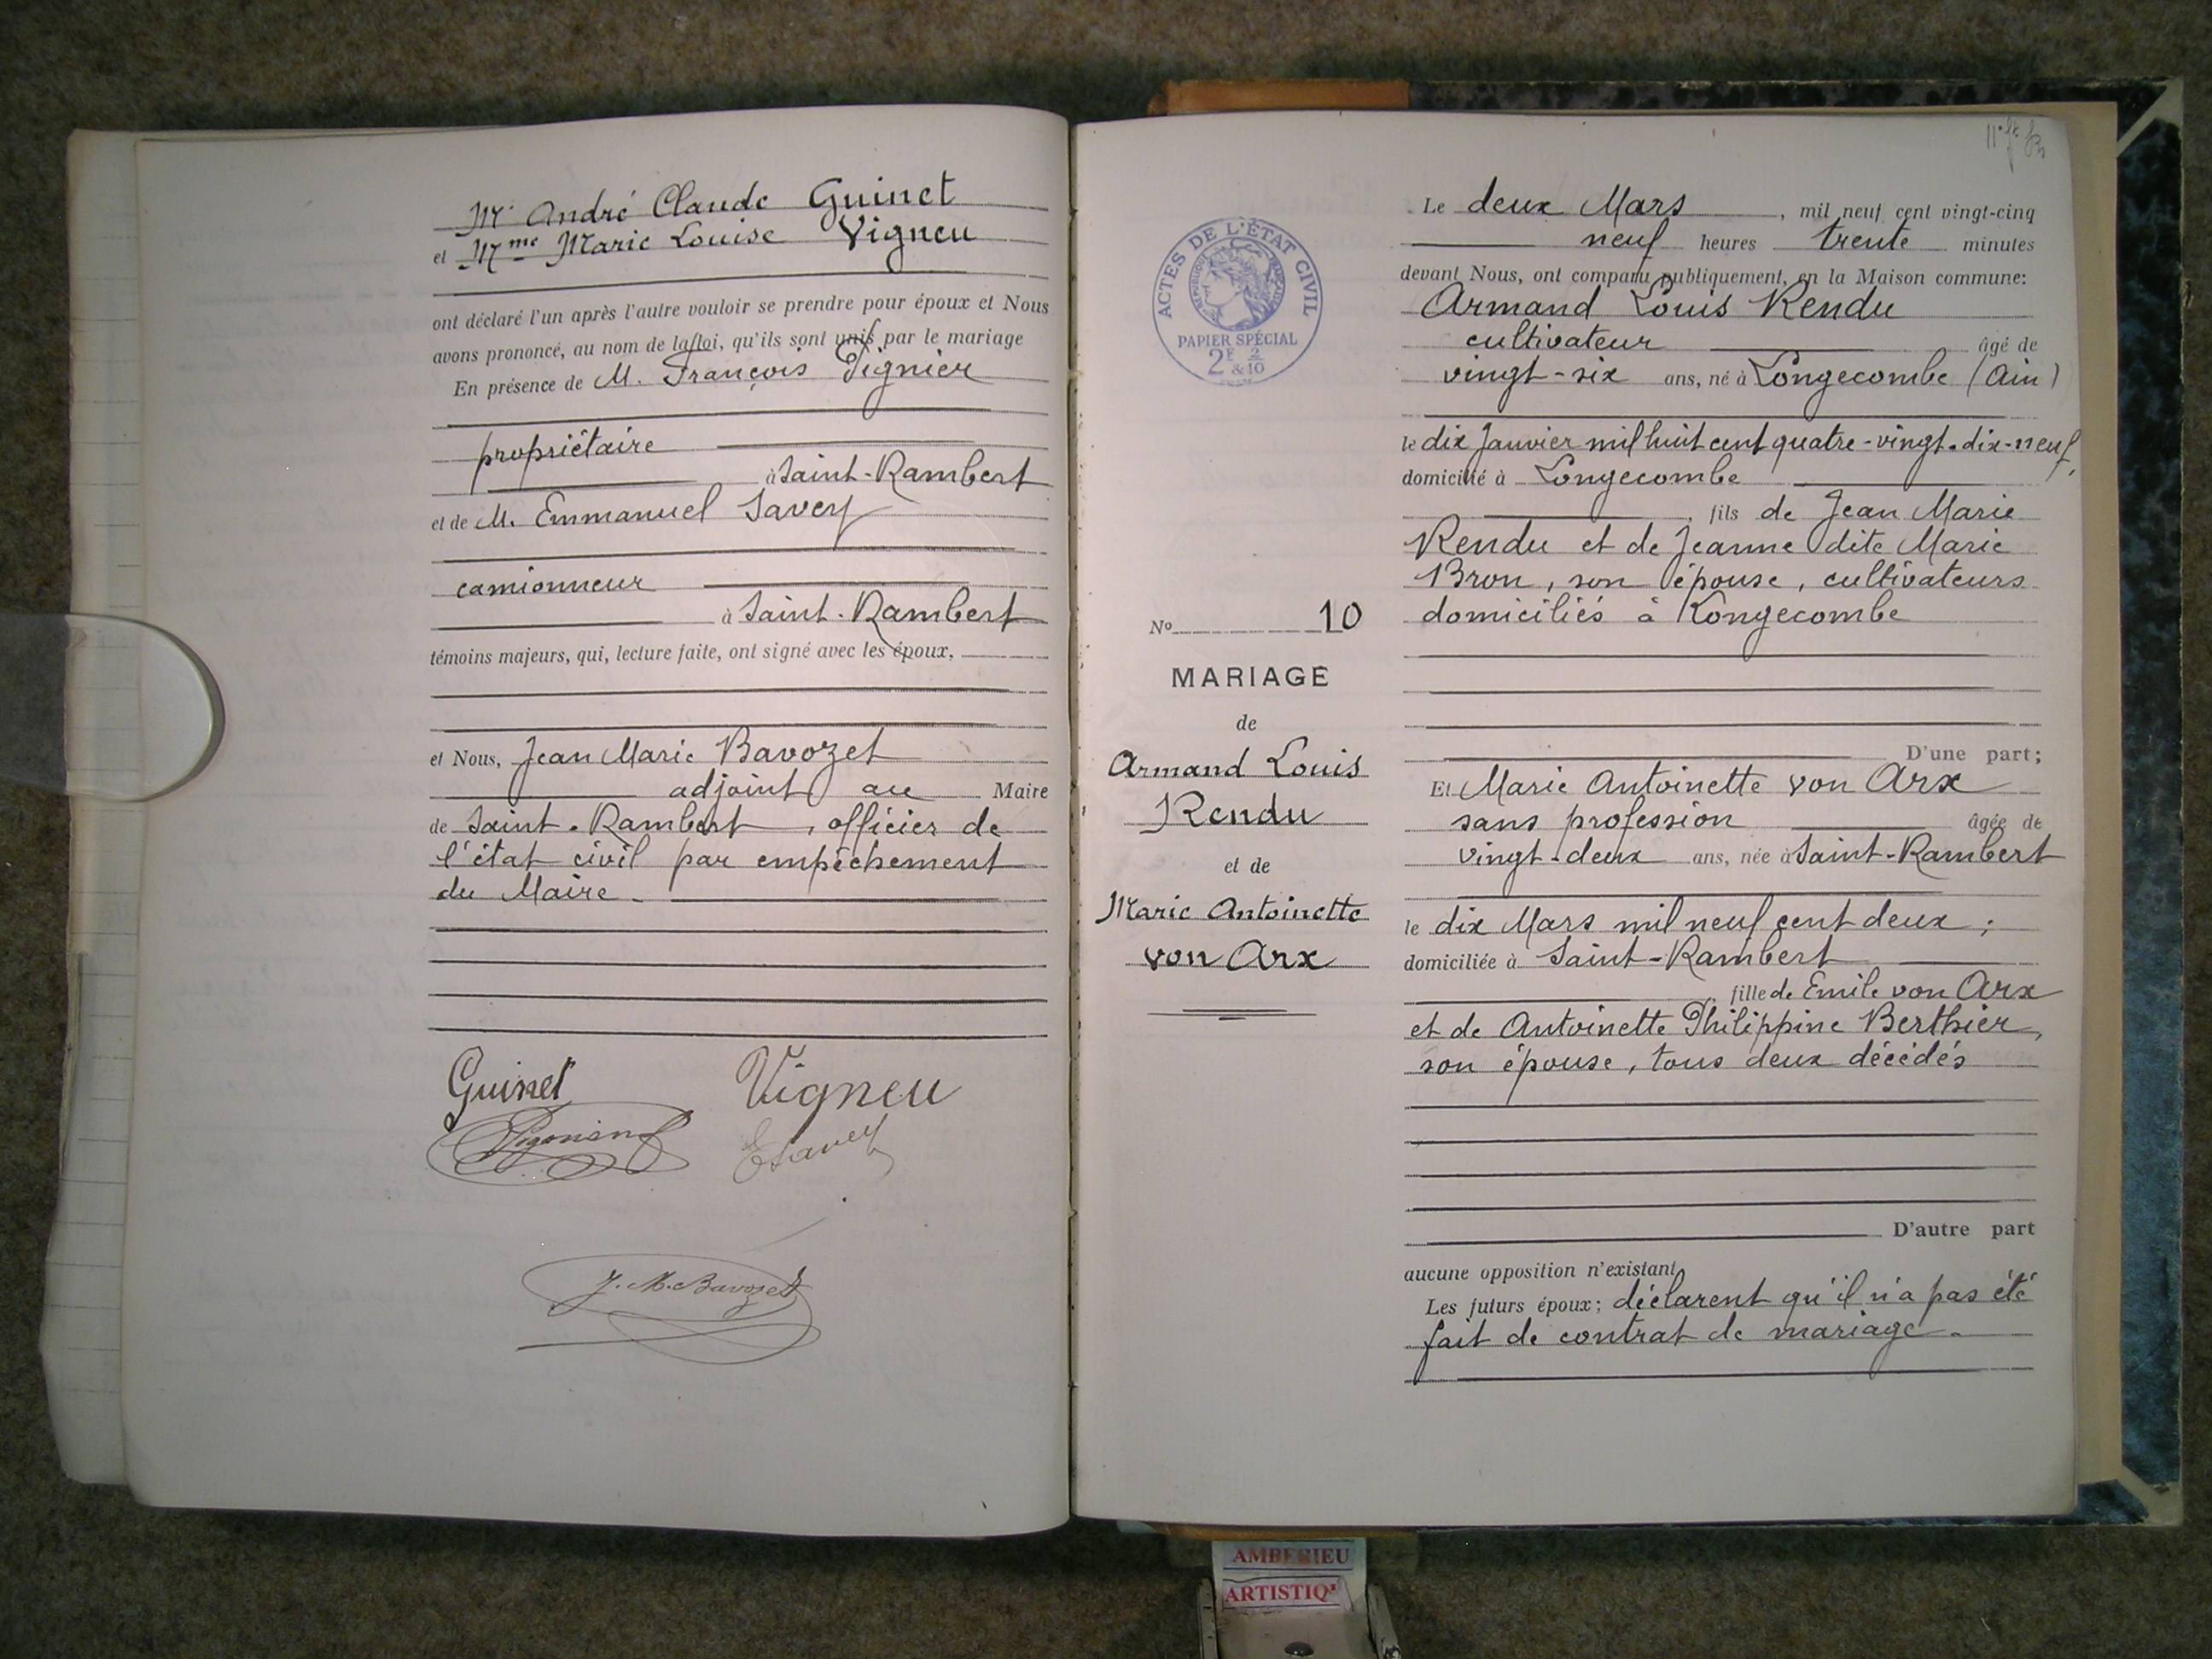 Mr André Claude Guinet
et Mme Marie Louise Vigneu
ont déclaré l'un après l'autre vouloir se prendre pour époux et Nous
avons prononcé, au nom de la loi, qu'ils sont unis par le mariage
En présence de M. François Pignier
propriétaire
à Saint-Rambert
et de M. Emmanuel Savey
camionneur
à Saint-Rambert
témoins majeurs, qui, lecture faite, ont signé avec les époux,
et Nous, Jean Marie Bavozet
adjoint au Maire
de Saint-Rambert, officier de
l'état civil par empêchement
du Maire.
Guinet Vigneu
E Savey
J. M. Bavozet
ACTES DE L'ÉTAT CIVIL
RÉPUBLIQUE FRANÇAISE
PAPIER SPÉCIAL
2F 2
& 10
No 10
MARIAGE
de
Armand Louis
Rendu
et de
Marie Antoinette
von Arx
Le deux Mars, mil neuf cent vingt-cinq
neuf heures trente minutes
devant Nous, ont comparu publiquement, en la Maison commune:
Armand Louis Rendu
cultivateur âgé de
vingt-six ans, né à Longecombe (Ain)
le dix Janvier mil huit cent quatre-vingt-dix-neuf,
domicilié à Longecombe
, fils de Jean Marie
Rendu et de Jeanne dite Marie
Bron, son épouse, cultivateurs
domiciliés à Longecombe
D'une part;
Et Marie Antoinette von Arx
sans profession âgée de
vingt-deux ans, née à Saint-Rambert
le dix Mars mil neuf cent deux;
domiciliée à Saint-Rambert
, fille de Emile von Arx
et de Antoinette Philippine Berthier,
son épouse, tous deux décédés
D'autre part
aucune opposition n'existant
Les futurs époux; déclarent qu'il n'a pas été
fait de contrat de mariage.
AMBERIEU
ARTISTIQ